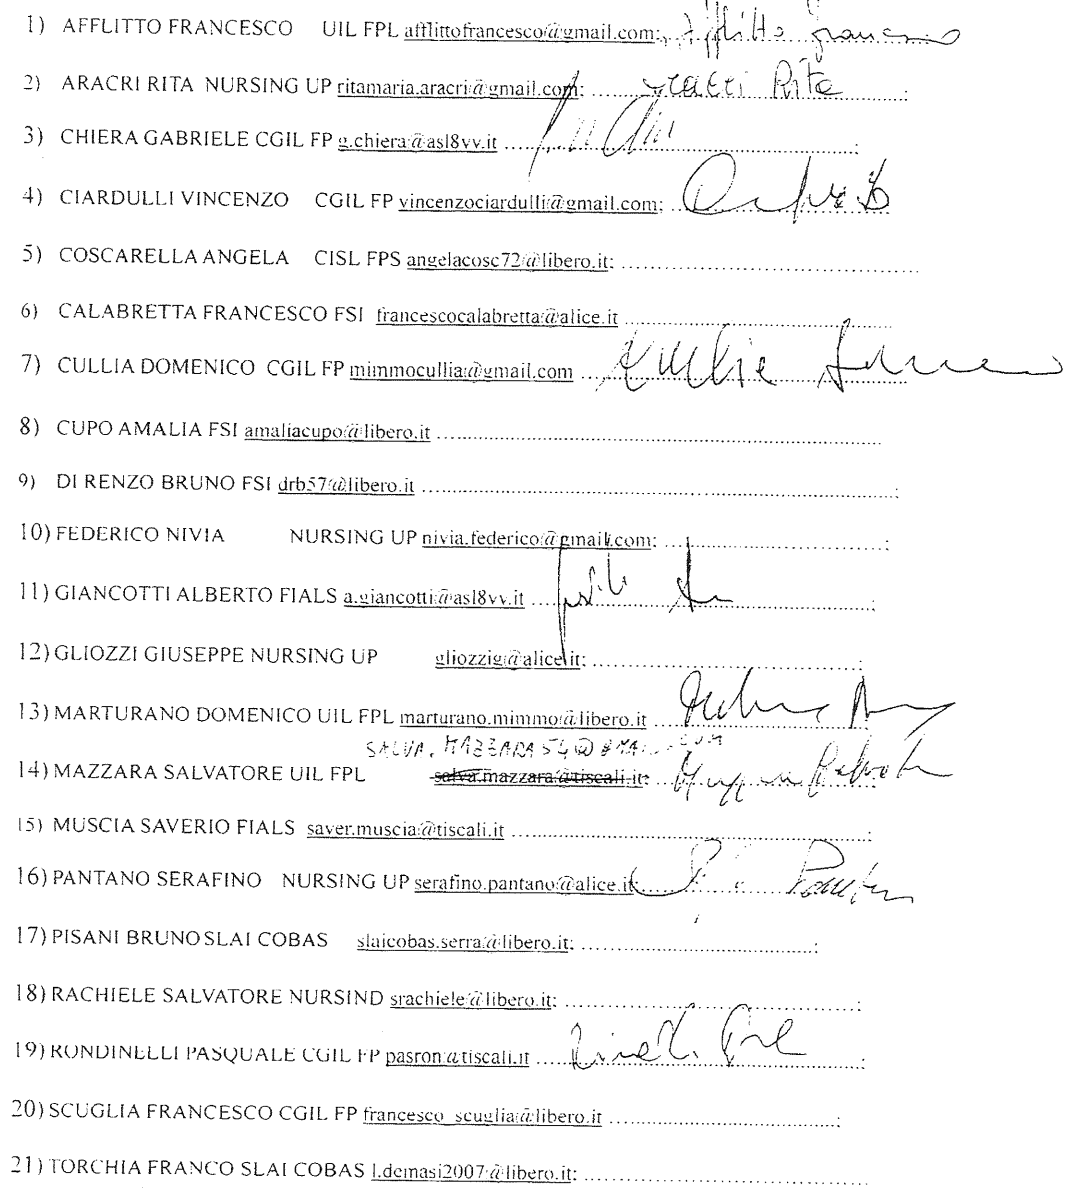 1) AFFLITTO FRANCESCO UIL FPL afflittofrancesco@gmail.com: Afflitto Francesco
2) ARACRI RITA NURSING UP ritamaria.aracri@gmail.com: ........ Aracri Rita ........:
3) CHIERA GABRIELE CGIL FP g.chiera@asl8vv.it ........:
4) CIARDULLI VINCENZO CGIL FP vincenzociardulli@gmail.com: ........
5) COSCARELLA ANGELA CISL FPS angelacosc72@libero.it: ........
6) CALABRETTA FRANCESCO FSI francescocalabretta@alice.it ........
7) CULLIA DOMENICO CGIL FP mimmocullia@gmail.com ........ Cullia
8) CUPO AMALIA FSI amaliacupo@libero.it ........
9) DI RENZO BRUNO FSI drb57@libero.it ........:
10) FEDERICO NIVIA NURSING UP nivia.federico@gmail.com: ........:
11) GIANCOTTI ALBERTO FIALS a.giancotti@asl8vv.it ........:
12) GLIOZZI GIUSEPPE NURSING UP gliozzig@alice.it: ........:
13) MARTURANO DOMENICO UIL FPL marturano.mimmo@libero.it ........
SALVA.MAZZARA54@GMAIL.COM
14) MAZZARA SALVATORE UIL FPL salva.mazzara@tiscali.it: ........
15) MUSCIA SAVERIO FIALS saver.muscia@tiscali.it ........:
16) PANTANO SERAFINO NURSING UP serafino.pantano@alice.it ........ Pantano
17) PISANI BRUNO SLAI COBAS slaicobas.serra@libero.it: ........:
18) RACHIELE SALVATORE NURSIND srachiele@libero.it: ........:
19) RONDINELLI PASQUALE CGIL FP pasron@tiscali.it ........:
20) SCUGLIA FRANCESCO CGIL FP francesco_scuglia@libero.it ........:
21) TORCHIA FRANCO SLAI COBAS l.demasi2007@libero.it: ........